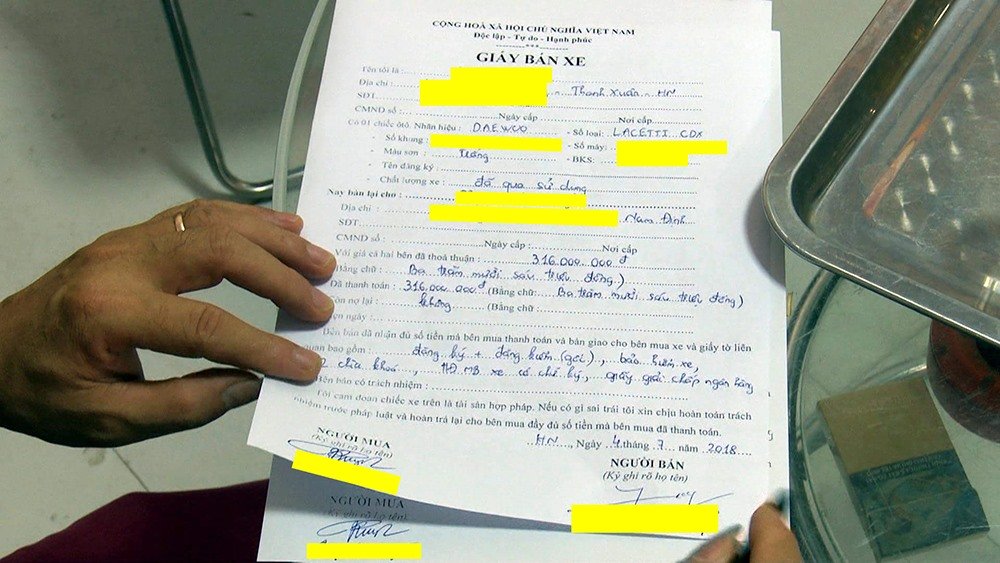 CỘNG HOÀ XÃ HỘI CHỦ NGHĨA VIỆT NAM
Độc lập - Tự do - Hạnh phúc
--------***--------
GIẤY BÁN XE
Tên tôi là :
Địa chỉ : Thanh Xuân - HN
SĐT
CMND số : Ngày cấp Nơi cấp
Có 01 chiếc ôtô. Nhãn hiệu : DAEWOO - Số loại: LACETTI CDX
- Số khung : - Số máy:
- Màu sơn : Trắng - BKS:
- Tên đăng ký
- Chất lượng xe : đã qua sử dụng
Nay bán lại cho :
Địa chỉ : Nam Định
SĐT:
CMND số : Ngày cấp : Nơi cấp
Với giá cả hai bên đã thoả thuận : 316.000.000 đ
(Bằng chữ : Ba trăm mười sáu triệu đồng)
Đã thanh toán : 316.000.000đ (Bằng chữ: Ba trăm mười sáu triệu đồng)
Còn nợ lại : không (Bằng chữ :
ngày :
Bên bán đã nhận đủ số tiền mà bên mua thanh toán và bàn giao cho bên mua xe và giấy tờ liên
quan bao gồm : đăng ký + đăng kiểm (gốc), bảo hiểm xe,
2 chìa khoá, HĐ MB xe có chữ ký, giấy giải chấp ngân hàng
Bên bán có trách nhiệm :
Tôi cam đoan chiếc xe trên là tài sản hợp pháp. Nếu có gì sai trái tôi xin chịu hoàn toàn trách
nhiệm trước pháp luật và hoàn trả lại cho bên mua đầy đủ số tiền mà bên mua đã thanh toán.
HN, Ngày 4 tháng 7 năm 2018
NGƯỜI MUA
(Ký ghi rõ họ tên)
NGƯỜI BÁN
(Ký ghi rõ họ tên)
NGƯỜI MUA
(Ký ghi rõ họ tên)